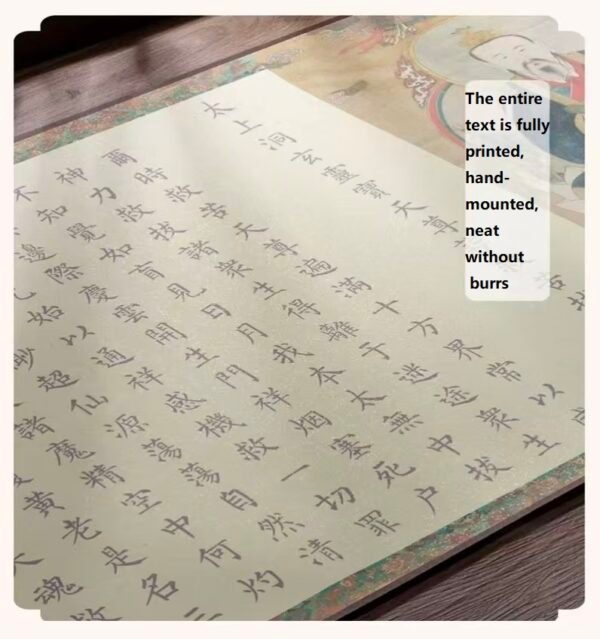 The entire
text is fully
printed,
hand-
mounted,
neat
without
burrs
太上洞玄靈寶天尊
爾時救苦天尊遍滿十方界常以
神力救拔諸眾生得離於迷途眾生
不知覺如盲見日月我本太無中拔
邊際慶雲開生門祥烟塞死戶
始以通祥感機救一切罪
渺超仙源蕩蕩自然清
諸魔精空中何灼
黃老是名三
魂救